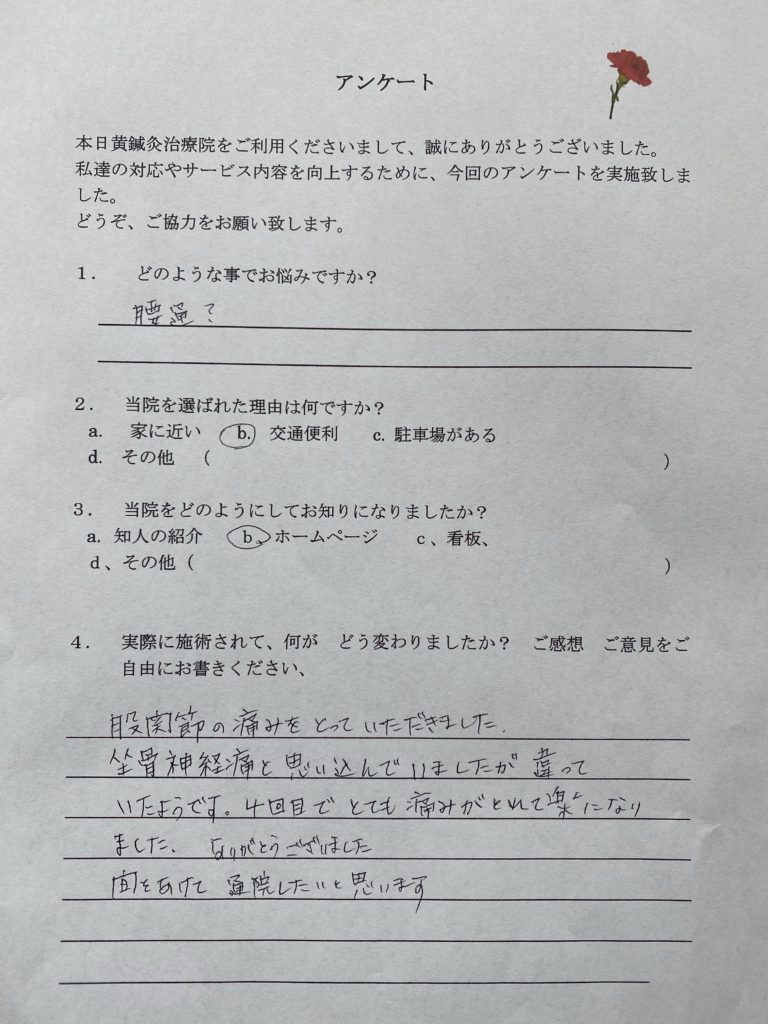 アンケート
本日黄鍼灸治療院をご利用くださいまして、誠にありがとうございました。
私達の対応やサービス内容を向上するために、今回のアンケートを実施致しま
した。
どうぞ、ご協力をお願い致します。
1. どのような事でお悩みですか?
腰 ?
2. 当院を選ばれた理由は何ですか?
a. 家に近い b. 交通便利 c. 駐車場がある
d. その他 ( )
3. 当院をどのようにしてお知りになりましたか?
a. 知人の紹介 b、ホームページ c、看板、
d、その他 ( )
4. 実際に施術されて、何が どう変わりましたか? ご感想 ご意見をご
自由にお書きください、
股関節の痛みをとっていただきました.
坐骨神経痛と思い込んでいましたが違って
いたようです。4回目でとても痛みがとれて楽になり
ました. ありがとうございました
間をあけて通院したいと思います